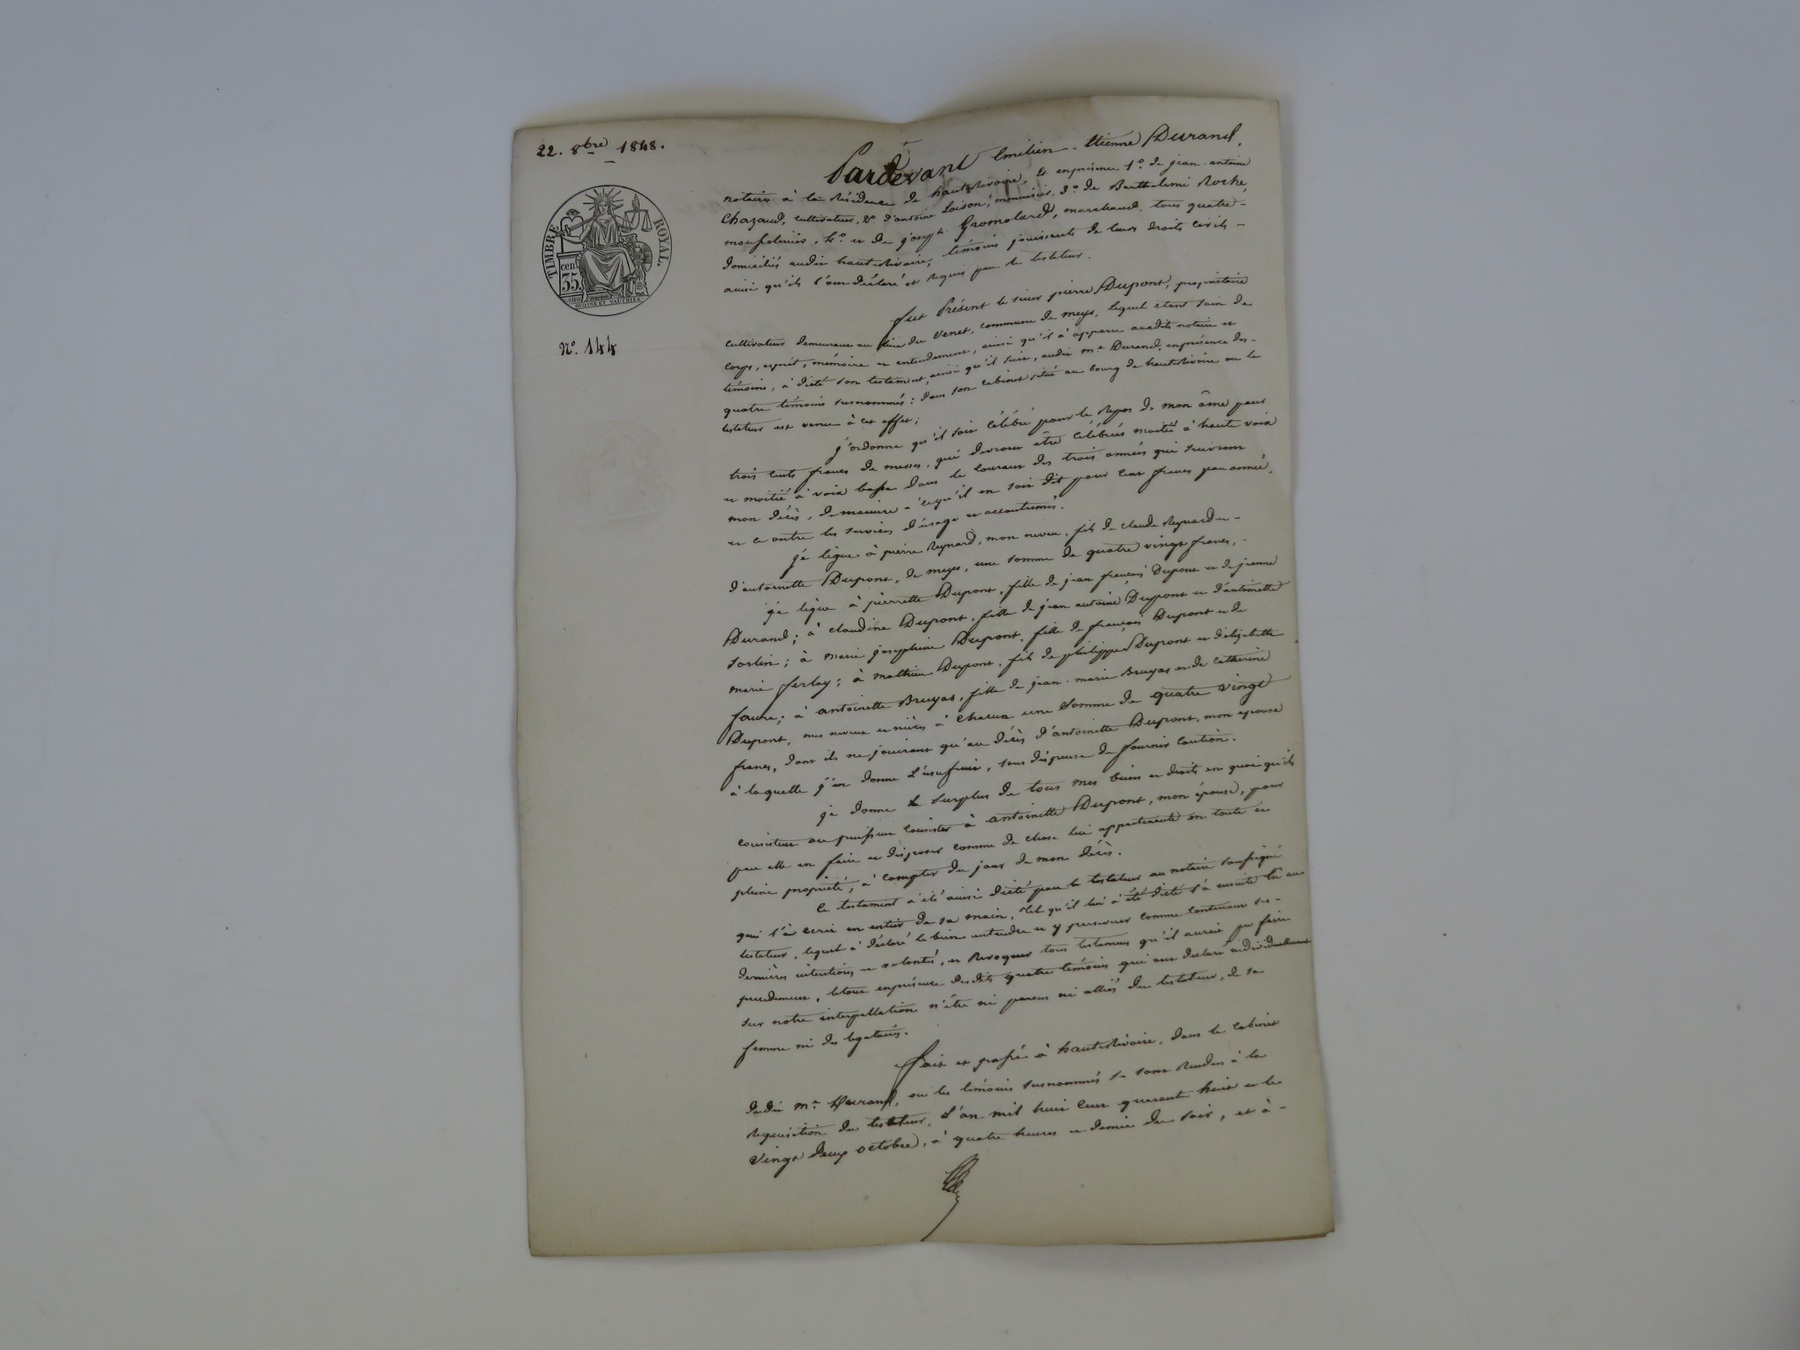 22. 8bre 1848.
TIMBRE ROYAL.
cent. 35.
N°. 144
Pardevant Emilien-Etienne Durand,
notaire à la Résidence de hauterivoire, & enprésence 1°. de jean-antoine
Chazaud, cultivateur, 2°. d'antoine Loison, menuisier, 3°. de Barthelemi Roche,
4°. et de joseph Gromolard, marchand, tous quatre
domiciliés audit hauterivoire, témoins jouissants de leurs droits civils
ainsi qu'ils l'ont déclaré et requis par le testateur.
fut Présent le sieur pierre Dupont, propriétaire
cultivateur demeurant au lieu du Venet, commune de meys, lequel etant sain de
corps, esprit, mémoire et entendement, ainsi qu'il à apparu auxdits notaire et
témoins, à dicté son testament, ainsi qu'il suit, audit me Durand, enprésence des
quatre témoins susnommés : dans son cabinet situé au bourg de hauterivoire où le
testateur est venu à cet effet ;
j'ordonne qu'il soit célébré pour le Repos de mon âme pour
trois cents francs de messes, qui devront être célébrées moitié à haute voix
et moitié à voix basse dans le courant des trois années qui suivront
mon décès, de manière à ce qu'il en soit dit pour cent francs par année,
et ce outre les services d'usage et accoutumés.
je lègue à pierre Reynard, mon neveu, fils de claude Reynard et
d'antoinette Dupont, de meys, une somme de quatre vingt francs,
je lègue à pierrette Dupont, fille de jean françois Dupont et de jeanne
Durand ; à claudine Dupont, fille de jean antoine Dupont et d'antoinette
Sorlin ; à marie josephine Dupont, fille de françois Dupont et de
marie ferlay ; à mathieu Dupont, fils de philippe Dupont et d'elizabette
faure ; à antoinette Bruyas, fille de jean-marie Bruyas et de catherine
Dupont, mes neveux et nièces à chacun une somme de quatre vingt
francs, dont ils ne jouiront qu'au décès d'antoinette Dupont, mon epouse
à laquelle j'en donne l'usufruit, sans dispense de fournir caution.
je donne le surplus de tous mes biens et droits en quoi qu'ils
consistent ou puissent consister à antoinette Dupont, mon épouse, pour
par elle en faire et disposer comme de chose lui appartenante en toute et
pleine propriété, à compter du jour de mon décès.
Ce testament à été ainsi dicté par le testateur au notaire soussigné
qui l'à ecrit en entier de sa main, tel qu'il lui à été dicté l'à ensuite lu au
testateur, lequel à déclaré le bien entendre et y persévérer comme contenant ses
dernières intentions et volontés, et Révoquer tous testaments qu'il aurait pu faire
précédemment, letout enprésence desdits quatre témoins qui ont déclaré individuellement
sur notre interpellation n'être ni parens ni alliés du testateur, de sa
femme ni des légataires.
fait et passé à hauterivoire, dans le cabinet
dudit me Durand, où les témoins susnommés se sont Rendus à la
Réquisition du testateur, l'an mil huit cent quarant huit et le
vingt deux octobre, à quatre heures et demie du soir, et à